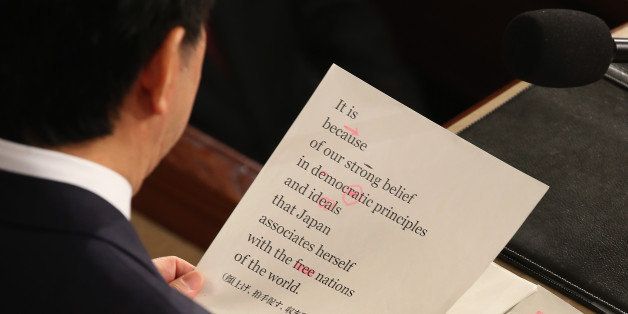 It is
because
of our strong belief
in democratic principles
and ideals
that Japan
associates herself
with the free nations
of the world.
(顔上げ、拍手促す、収